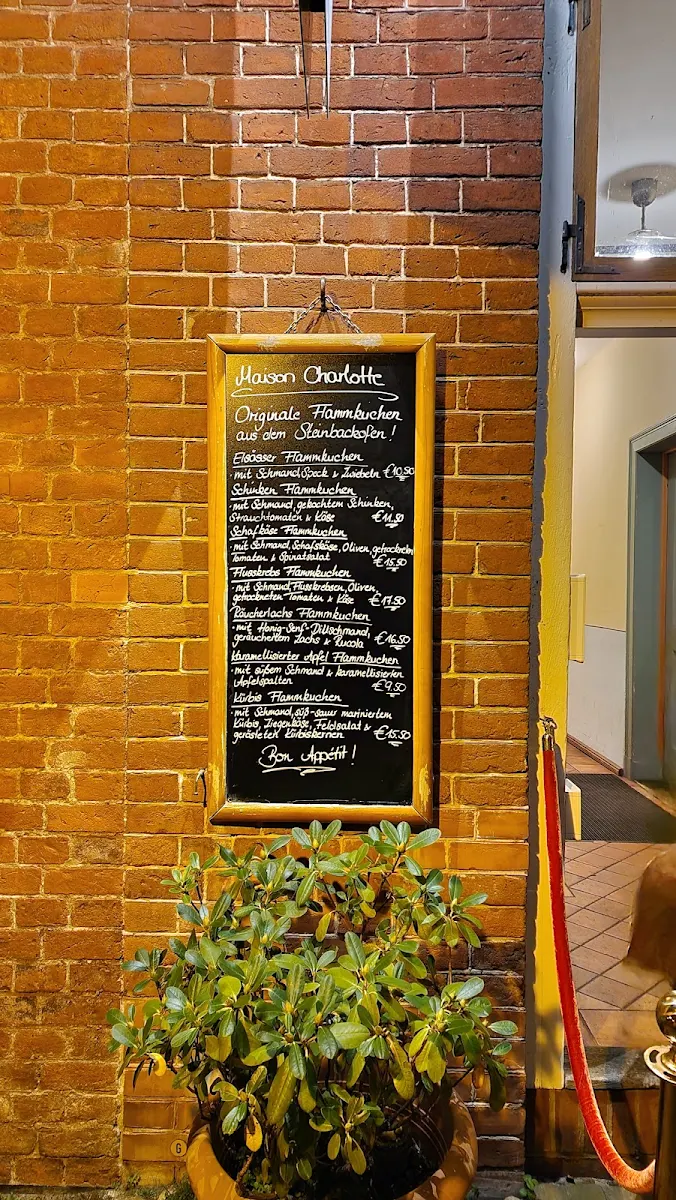 Maison Charlotte
Originale Flammkuchen
aus dem Steinbackofen!
Elsässer Flammkuchen
- mit Schmand, Speck & Zwiebeln €10,50
Schinken Flammkuchen
- mit Schmand, gekochtem Schinken,
Strauchtomaten & Käse €11,50
Schafkäse Flammkuchen
- mit Schmand, Schafskäse, Oliven, getrockneten
Tomaten & Spinatsalat €15,50
Flusskrebs Flammkuchen
- mit Schmand, Flusskrebsen, Oliven,
getrockneten Tomaten & Käse €17,50
Räucherlachs Flammkuchen
- mit Honig-Senf-Dillschmand,
geräuchertem Lachs & Rucola €16,50
Karamellisierter Apfel Flammkuchen
- mit süßem Schmand & karamellisierten
Apfelspalten €9,50
Kürbis Flammkuchen
- mit Schmand, süß-sauer mariniertem
Kürbis, Ziegenkäse, Feldsalat &
gerösteten Kürbiskernen €15,50
Bon Appétit!
G